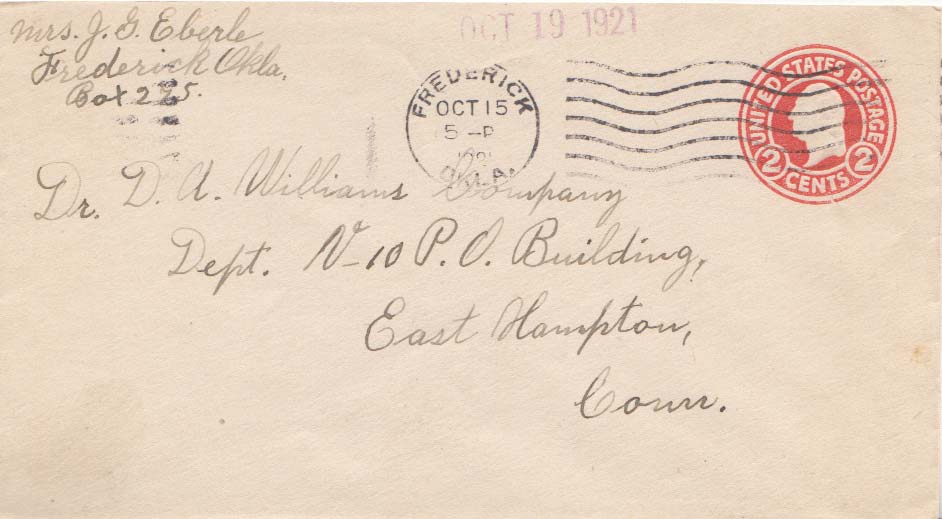 Mrs. J. G. Eberle
Frederick Okla.
Box 225.
OCT 19 1921
FREDERICK
OCT 15
5 -P
1921
OKLA.
UNITED STATES POSTAGE
2 CENTS 2
Dr. D. A. Williams Company
Dept. V-10 P. O. Building,
East Hampton,
Conn.